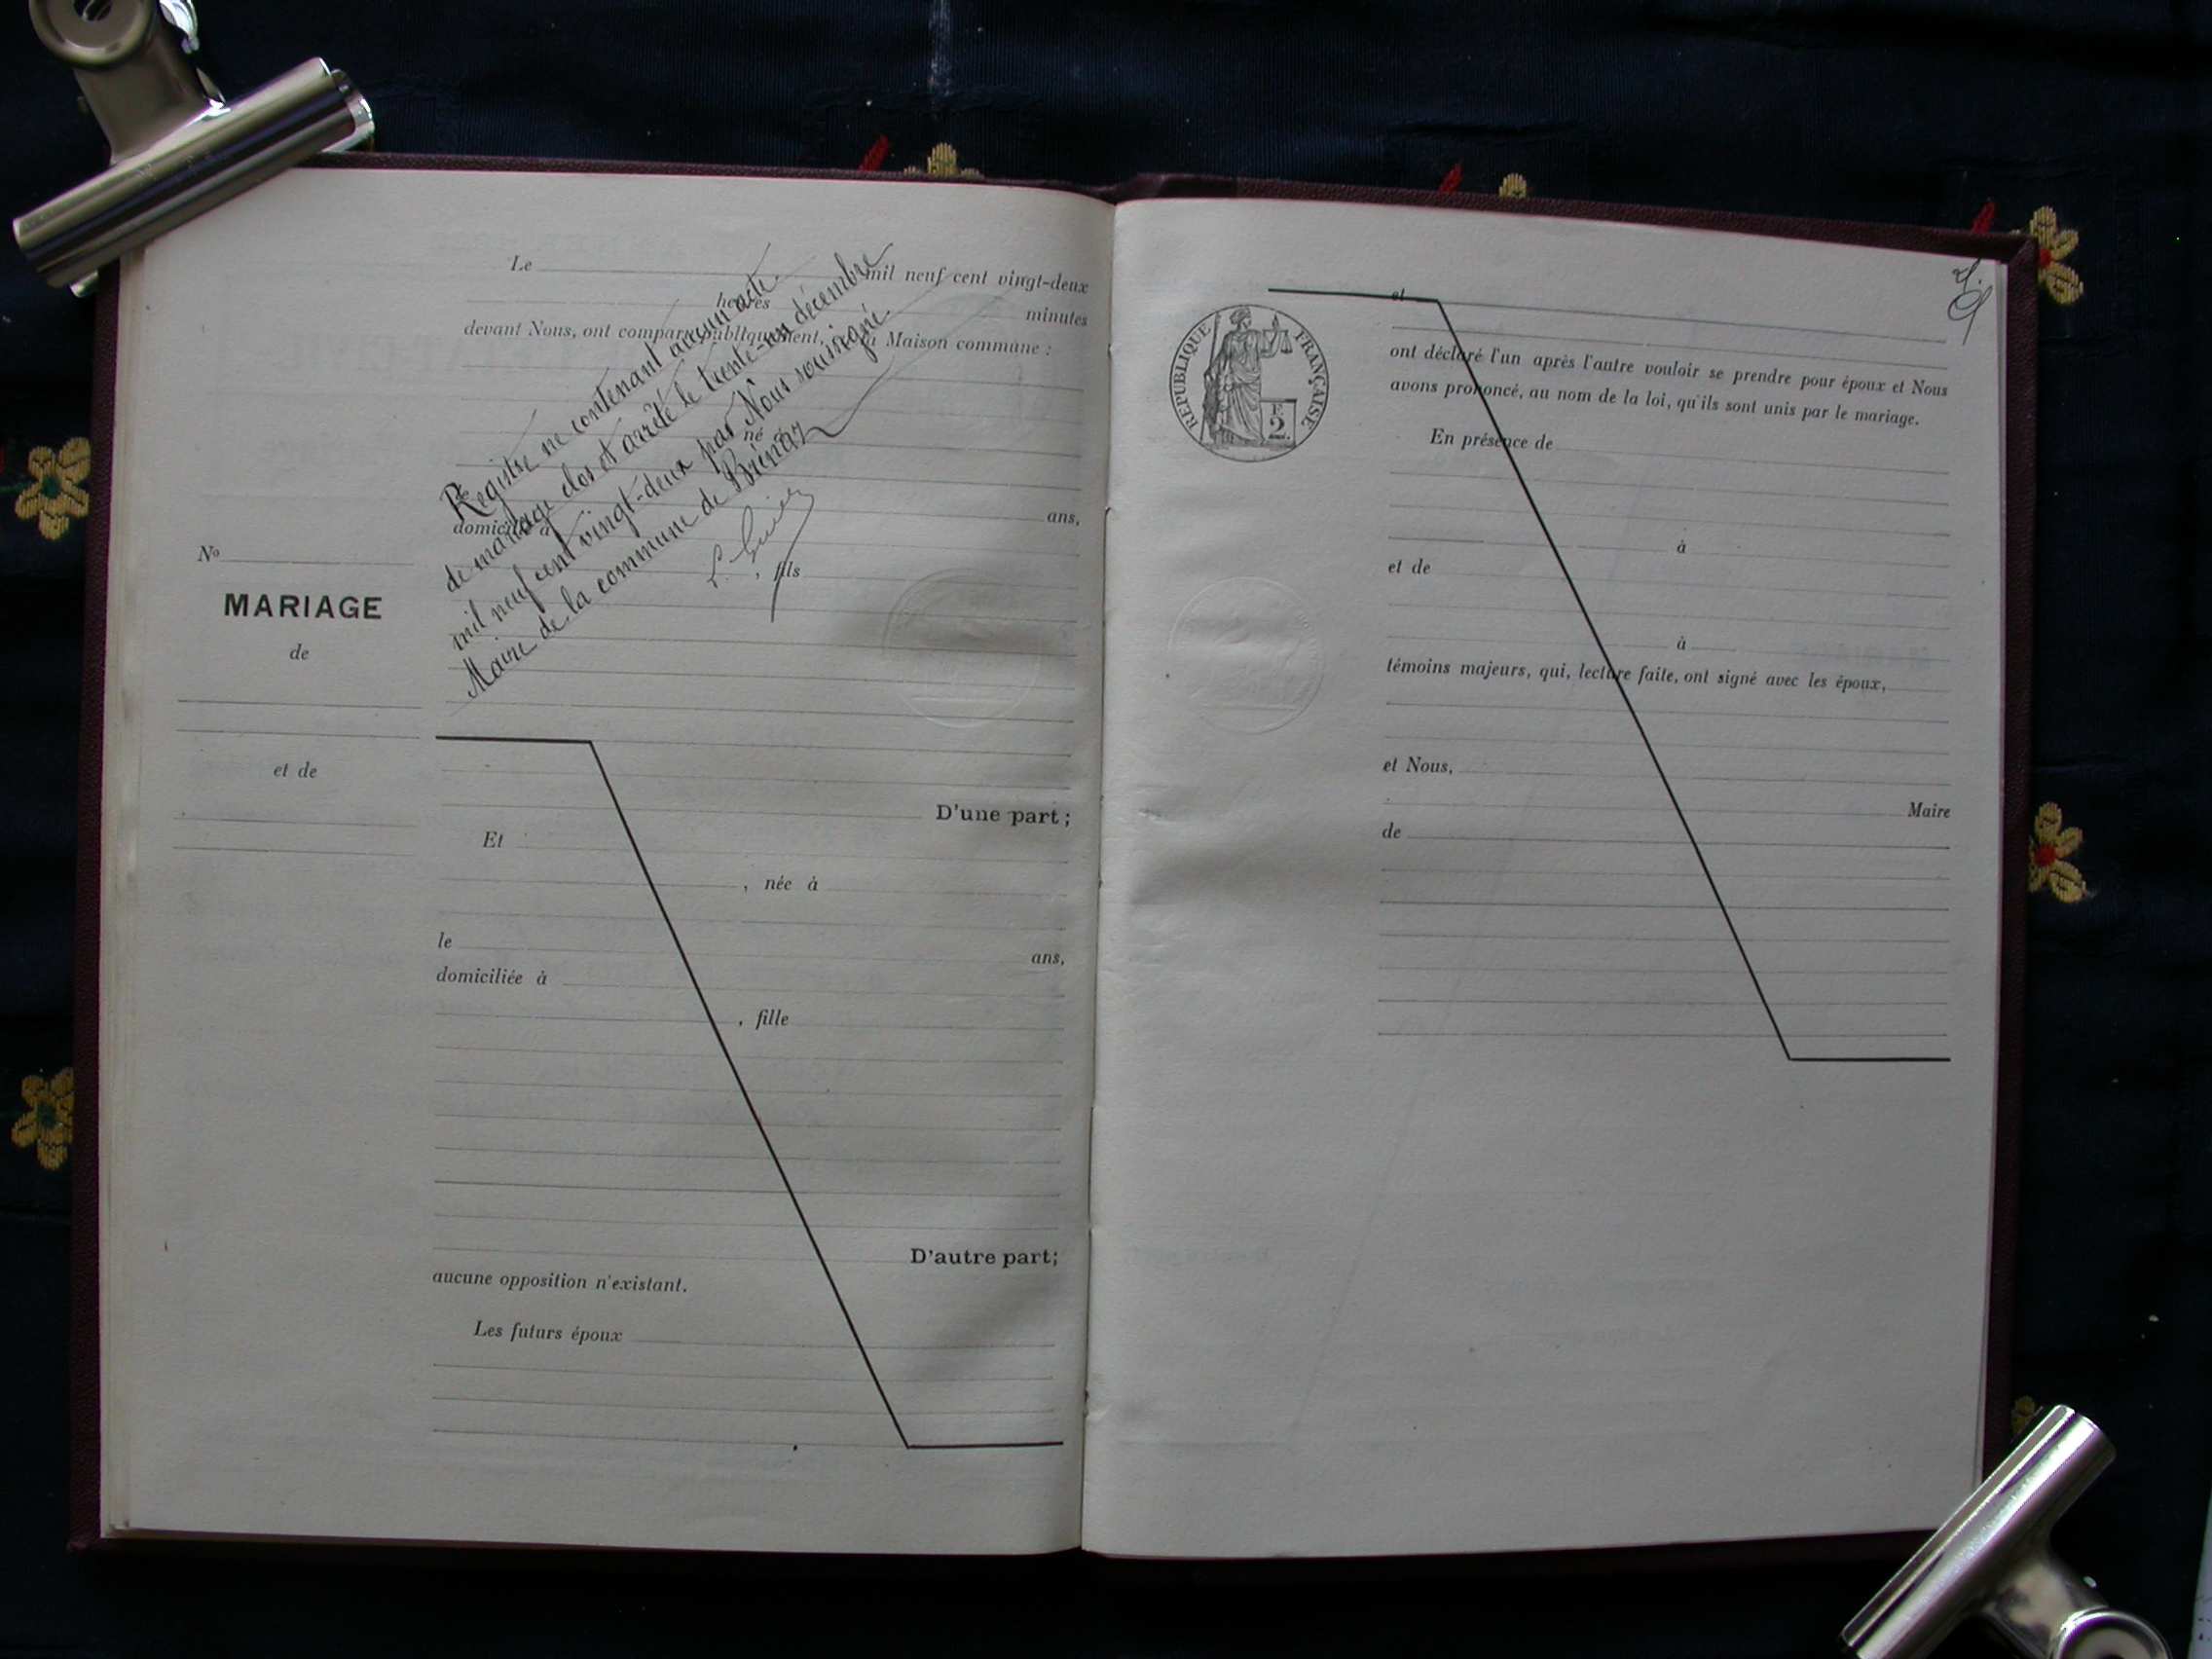 Le mil neuf cent vingt-deux
heures minutes
devant Nous, ont comparu publiquement, la Maison commune :
né
ans,
domicilié à
, fils
Registre ne contenant aucun acte
de mariage clos et arrêté le trente-un décembre
mil neuf cent vingt-deux par Nous soussigné.
Maire de la commune de
No
MARIAGE
de
et de
D'une part ;
Et
, née à
le ans,
domiciliée à
, fille
D'autre part;
aucune opposition n'existant.
Les futurs époux
et
RÉPUBLIQUE FRANÇAISE
2
ont déclaré l'un après l'autre vouloir se prendre pour époux et Nous
avons prononcé, au nom de la loi, qu'ils sont unis par le mariage.
En présence de
à
et de
à
témoins majeurs, qui, lecture faite, ont signé avec les époux,
et Nous,
Maire
de